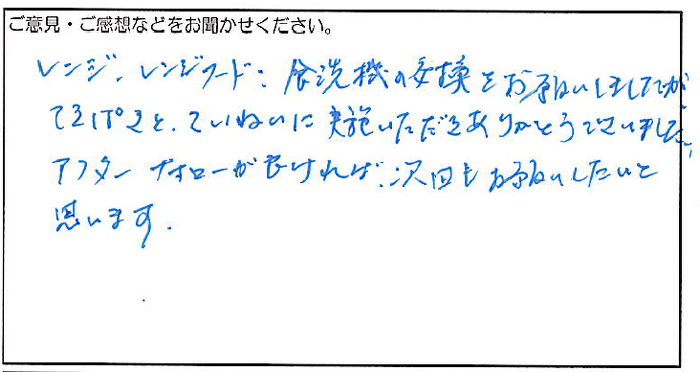 ご意見・ご感想などをお聞かせください。
レンジ、レンジフード、食洗機の交換をお願いしましたが
てきぱきと、ていねいに実施いただきありがとうございました。
アフターフォローが良ければ、次回もお願いしたいと
思います。